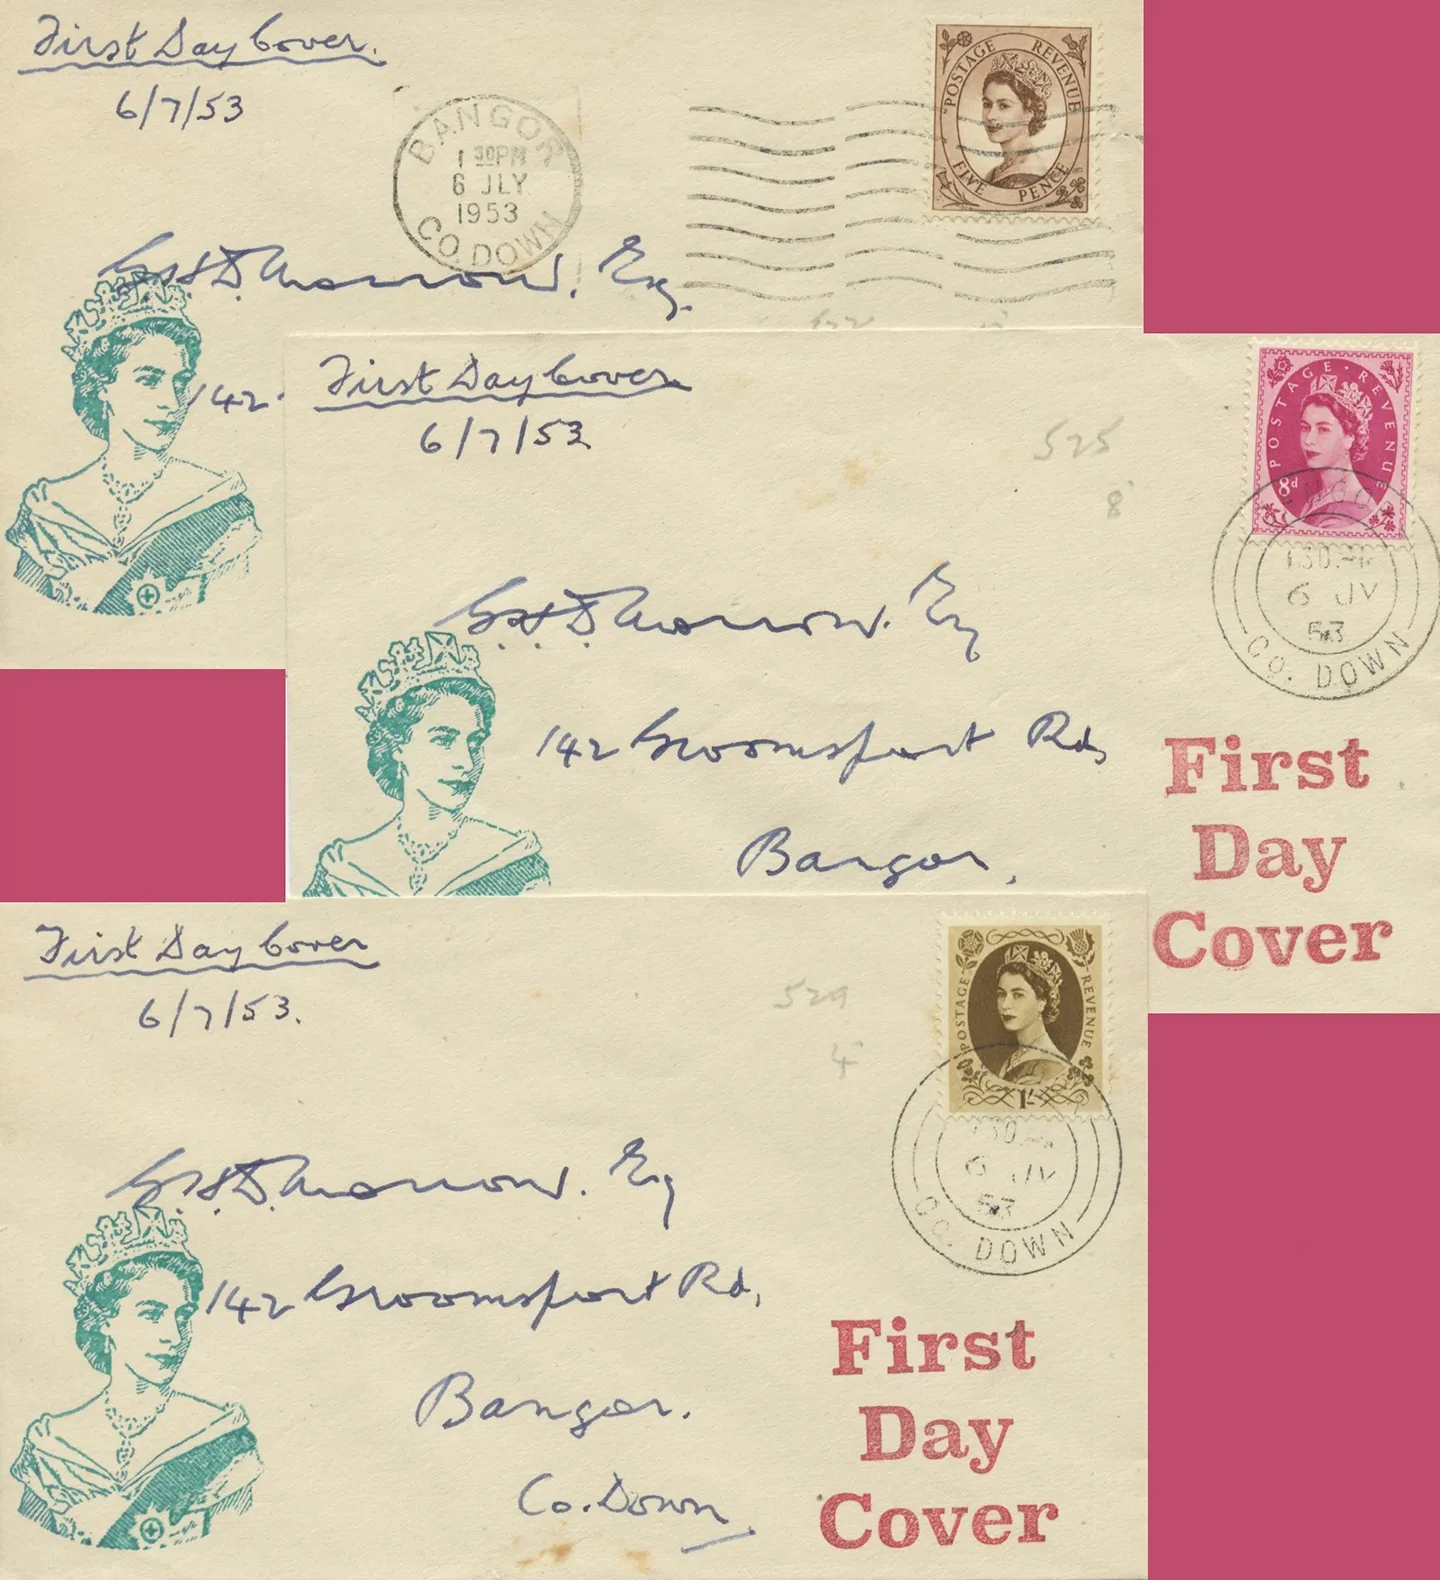 First Day Cover.
6/7/53
BANGOR
1 30PM
6 JLY
1953
CO. DOWN
POSTAGE REVENUE
FIVE PENCE
G.H.D. Morrow. Esq.
142
First Day Cover
6/7/53
525
8
POSTAGE REVENUE
8d
6 JY
53
CO. DOWN
G.H.D. Morrow. Esq
142 Groomsport Rd,
Bangor,
First
Day
Cover
First Day Cover
6/7/53.
529
4
POSTAGE REVENUE
1/-
6 JY
53
CO. DOWN
G.H.D. Morrow. Esq
142 Groomsport Rd,
Bangor.
Co. Down
First
Day
Cover